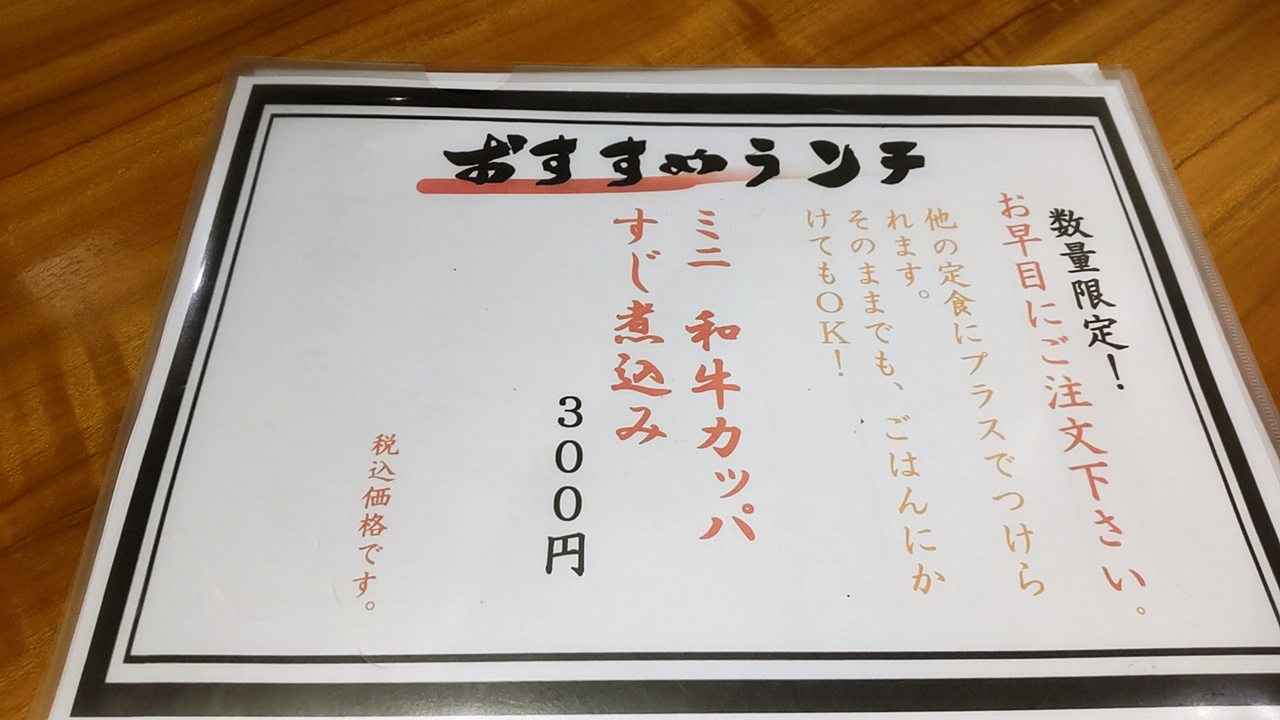 おすすめランチ
数量限定！
お早目にご注文下さい。
他の定食にプラスでつけら
れます。
そのままでも、ごはんにか
けてもＯＫ！
ミニ　和牛カッパ
すじ煮込み
３００円
税込価格です。